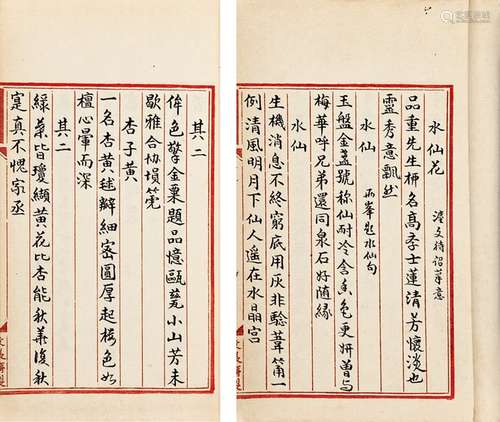 水仙花 文待詔筆意
品重先生栁名高斈士蓮清芳懷淡也
靈秀意飄然
水仙 西峯題水仙句
玉盤金盞號称仙耐冷含香色更妍曾与
梅華呼兄弟還同泉石好随緣
水仙
生機消息不終窮底用灰非驗葦筩一
例清風明月下仙人遥在水晶宫
其二
侔色擎金粟題品憶甌甍小山芳未
歇雅合協塤篪
杏子黄
一名杏黄毬瓣細密圓厚起樓色如
檀心暈而深
其二
緑葉皆瓊纈黄花比杏能秋華復秋
寔真不愧家丞